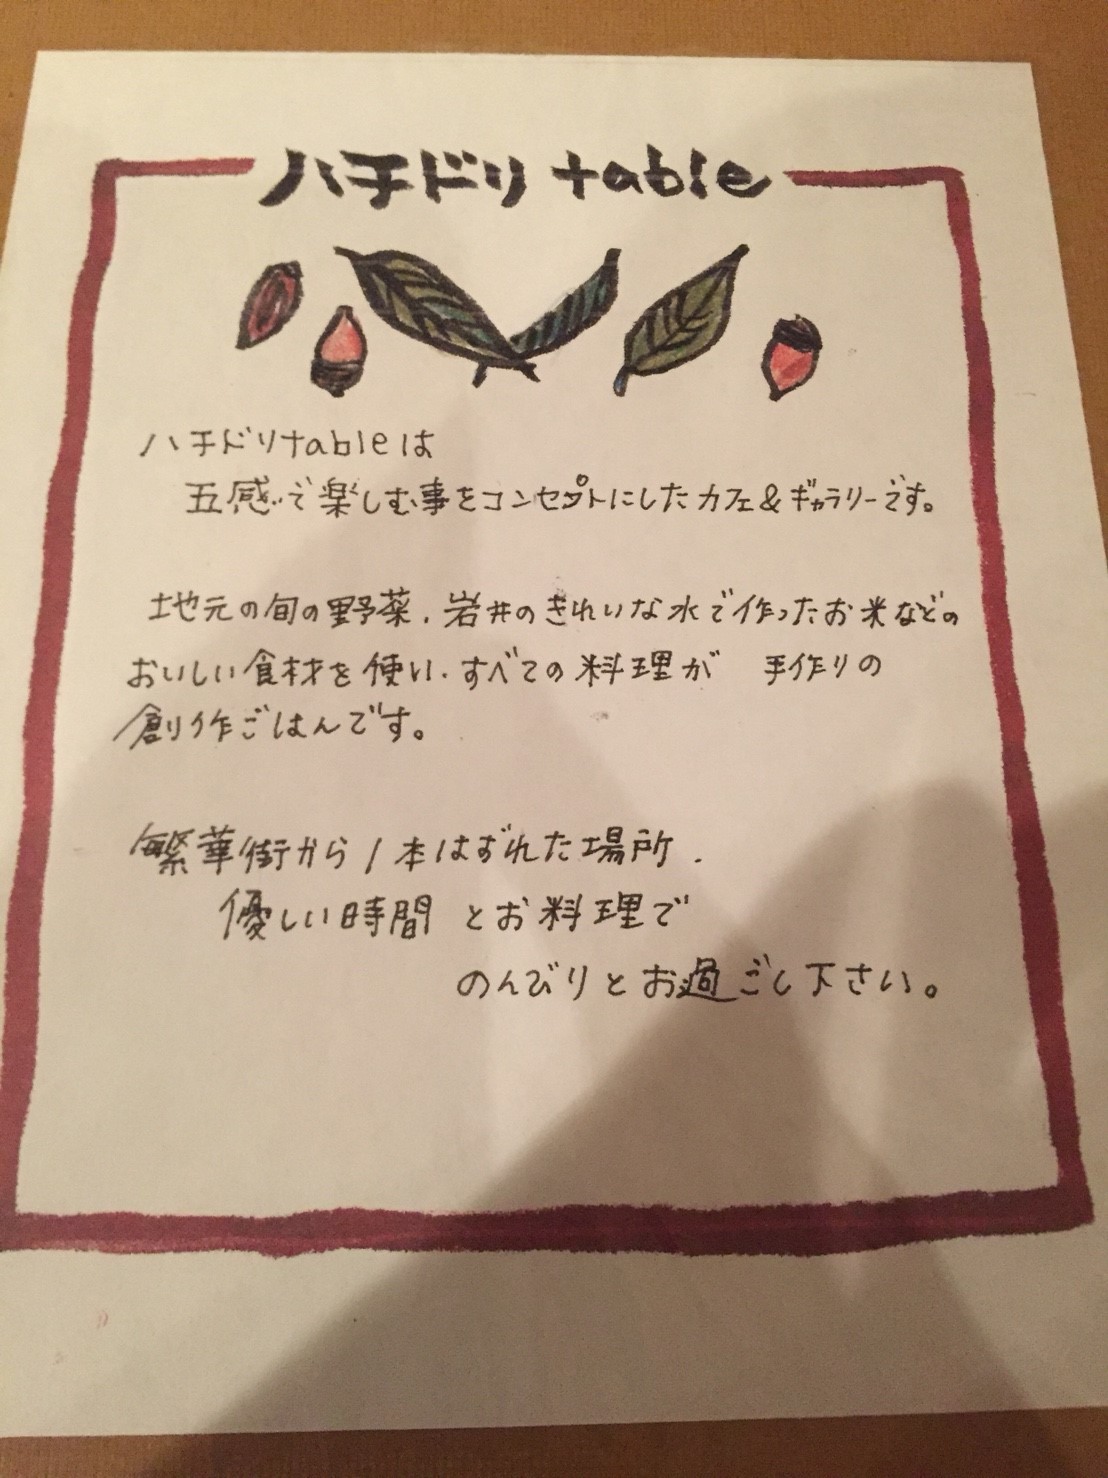 ハチドリ table
ハチドリtableは
五感で楽しむ事をコンセプトにしたカフェ&ギャラリーです。
地元の旬の野菜、岩井のきれいな水で作ったお米などの
おいしい食材を使い、すべての料理が 手作りの
創作ごはんです。
繁華街から1本はずれた場所、
優しい時間 とお料理で
のんびりとお過ごし下さい。